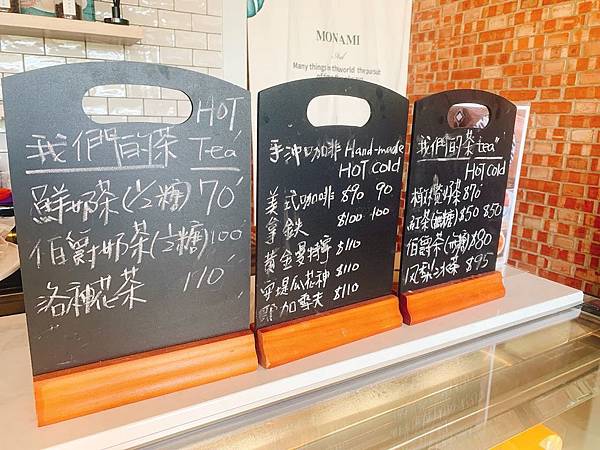 MONAMI
Many things in the world the pursuit
我們的茶 HOT Tea
鮮奶茶(½糖) 70
伯爵奶茶(½糖) 100
洛神花茶 110
手沖咖啡 Hand-made
HOT cold
美式咖啡 $90 90
拿鐵 $100 100
黃金曼特寧 $110
安堤瓜花神 $110
耶加雪夫 $110
我們的茶 "tea"
HOT cold
奶茶 $70
紅茶(無糖) $50 $50
伯爵茶(無糖) $80
鳳梨冰茶 $95